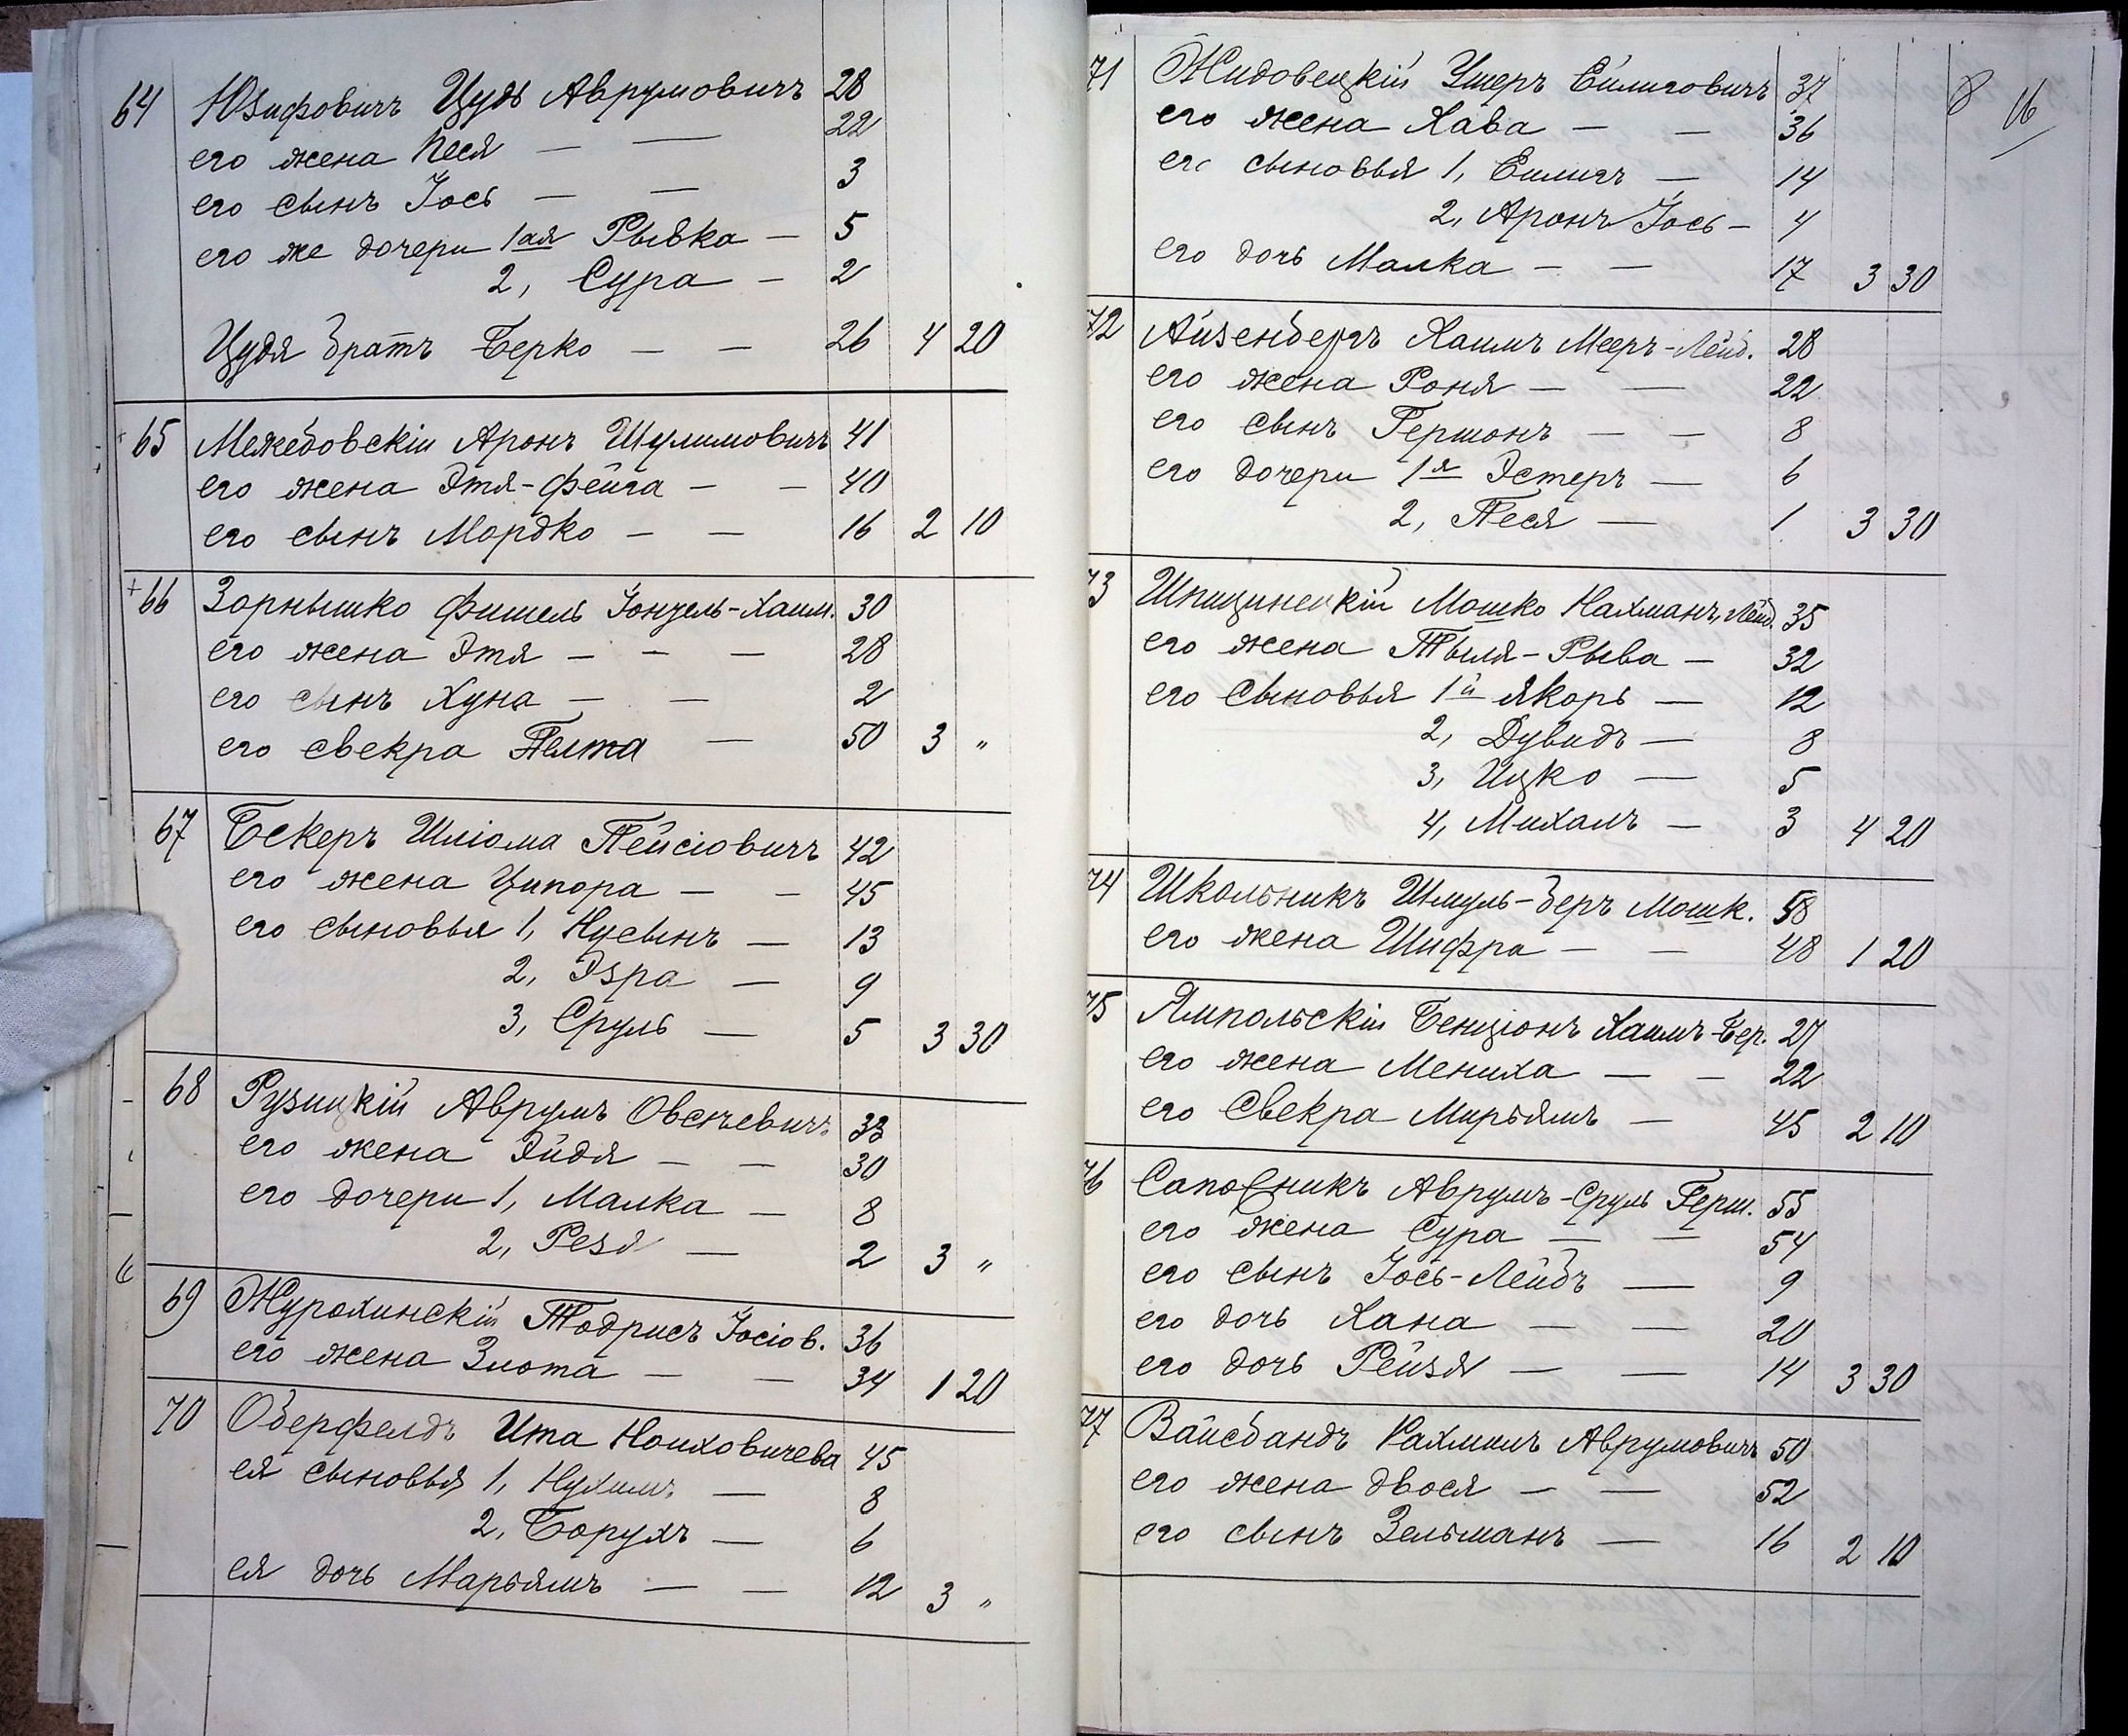 64 Юзифовичъ Цудь Аврумовичъ 28
его жена Песя — — 22
его сынъ Іось — — 3
его же дочери 1ая Рывка — 5
2, Сура — 2
Цудя братъ Берко — — 26 4 20
65 Межебовскій Аронъ Шулимовичъ 41
его жена Этя-Фейга — — 40
его сынъ Мордко — — 16 2 10
+66 Зорнышко Фишель Іонцель-Хаим. 30
его жена Этя — — — 28
его сынъ Хуна — — 2
его свекра Пелта — 50 3 "
67 Бекеръ Шліома Пейсіовичъ 42
его жена Ципора — — 45
его сыновья 1, Нусынъ — 13
2, Эзра — 9
3, Сруль — 5 3 30
68 Рузицкій Аврумъ Овсѣевичъ 33
его жена Эйдя — — 30
его дочери 1, Малка — 8
2, Резя — 2 3 "
69 Журахинскій Тодрисъ Іосіов. 36
его жена Злота — — 34 1 20
70 Оберфелдъ Ита Ноиховичева 45
ея сыновья 1, Нухимъ — 8
2, Борухъ — 6
ея дочь Марьямъ — — 12 3 "
8 16
71 Жидовецкій Ушеръ Ейлиговичъ 37
его жена Хава — — 36
его сыновья 1, Еилигъ — 14
2, Аронъ Іось — 4
его дочь Малка — — 17 3 30
72 Айзенбергъ Хаимъ Мееръ-Лейб. 28
его жена Роня — — 22
его сынъ Гершонъ — — 8
его дочери 1я Эстеръ — 6
2, Песя — 1 3 30
73 Шпицинецкій Мошко Нахманъ, Лейб. 35
его жена Тыля-Рыва — 32
его сыновья 1й Якорь — 12
2, Дувидъ — 8
3, Ицко — 5
4, Михаль — 3 4 20
74 Школьникъ Шмуль-Беръ Мошк. 58
его жена Шифра — — 48 1 20
75 Ямпольскій Бенціонъ Хаимъ-Бер. 27
его жена Мениха — — 22
его Свекра Мирьямъ — 45 2 10
76 Сапожникъ Аврумъ-Сруль Герш. 55
его жена Сура — — 54
его сынъ Іось-Лейбъ — 9
его дочь Хана — — 20
его дочь Рейзя — — 14 3 30
77 Вайсбандъ Рахмилъ Аврумовичъ 50
его жена Двося — — 52
его сынъ Зельманъ — 16 2 10